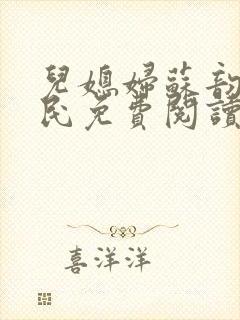 兒媳婦蘇韵
民免費閱讀
喜洋洋